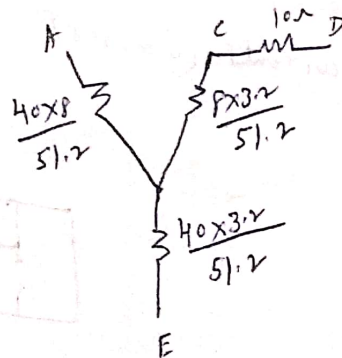 10Ω
A
C
D
40×8
51.2
8×3.2
51.2
40×3.2
51.2
E